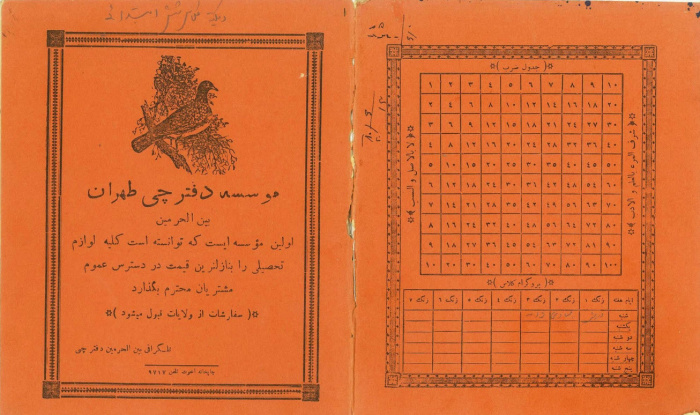 موسسه دفتر چی طهران
بین الحرمین
اولین مؤسسه ایست که توانسته است کلیه لوازم
تحصیلی را بنازلترین قیمت در دسترس عموم
مشتریان محترم بگذارد
*( سفارشات از ولایات قبول میشود )*
تلگرافی بین الحرمین دفتر چی
تلفن ۹۷۱۷
*( جدول ضرب )*
۱ ۲ ۳ ۴ ۵ ۶ ۷ ۸ ۹ ۱۰
۲ ۴ ۶ ۸ ۱۰ ۱۲ ۱۴ ۱۶ ۱۸ ۲۰
۳ ۶ ۹ ۱۲ ۱۵ ۱۸ ۲۱ ۲۴ ۲۷ ۳۰
۴ ۸ ۱۲ ۱۶ ۲۰ ۲۴ ۲۸ ۳۲ ۳۶ ۴۰
۵ ۱۰ ۱۵ ۲۰ ۲۵ ۳۰ ۳۵ ۴۰ ۴۵ ۵۰
۶ ۱۲ ۱۸ ۲۴ ۳۰ ۳۶ ۴۲ ۴۸ ۵۴ ۶۰
۷ ۱۴ ۲۱ ۲۸ ۳۵ ۴۲ ۴۹ ۵۶ ۶۳ ۷۰
۸ ۱۶ ۲۴ ۳۲ ۴۰ ۴۸ ۵۶ ۶۴ ۷۲ ۸۰
۹ ۱۸ ۲۷ ۳۶ ۴۵ ۵۴ ۶۳ ۷۲ ۸۱ ۹۰
۱۰ ۲۰ ۳۰ ۴۰ ۵۰ ۶۰ ۷۰ ۸۰ ۹۰ ۱۰۰
شرف المرء بالعلم و الادب
لا بالاصل و النسب
*( پروگرام کلاس )*
ایام هفته زنگ ۱ زنگ ۲ زنگ ۳ زنگ ۴ زنگ ۵ زنگ ۶ زنگ ۷
شنبه
یکشنبه
دو شنبه
سه شنبه
چهار شنبه
پنج شنبه